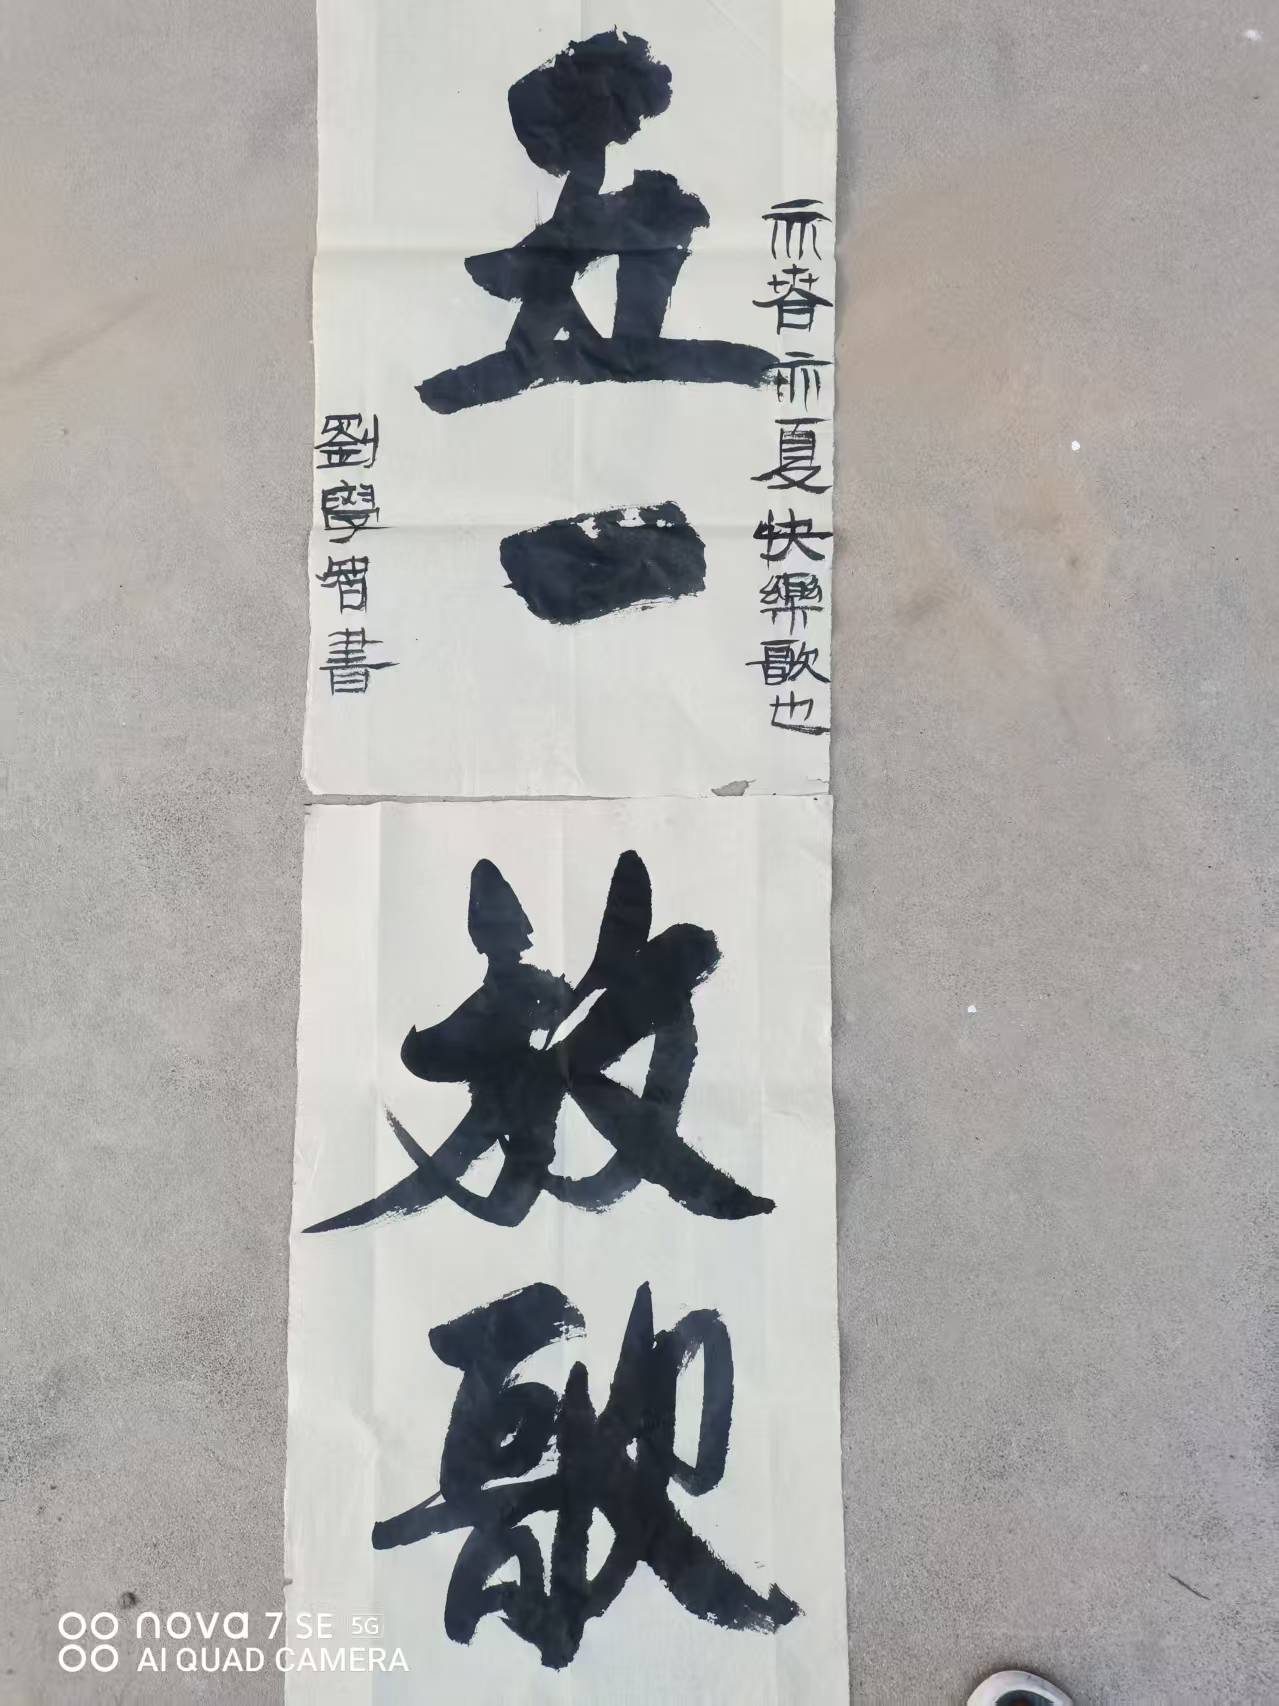 亦春亦夏快樂歌也
五一
放歌
劉學智書
nova 7 SE 5G
AI QUAD CAMERA